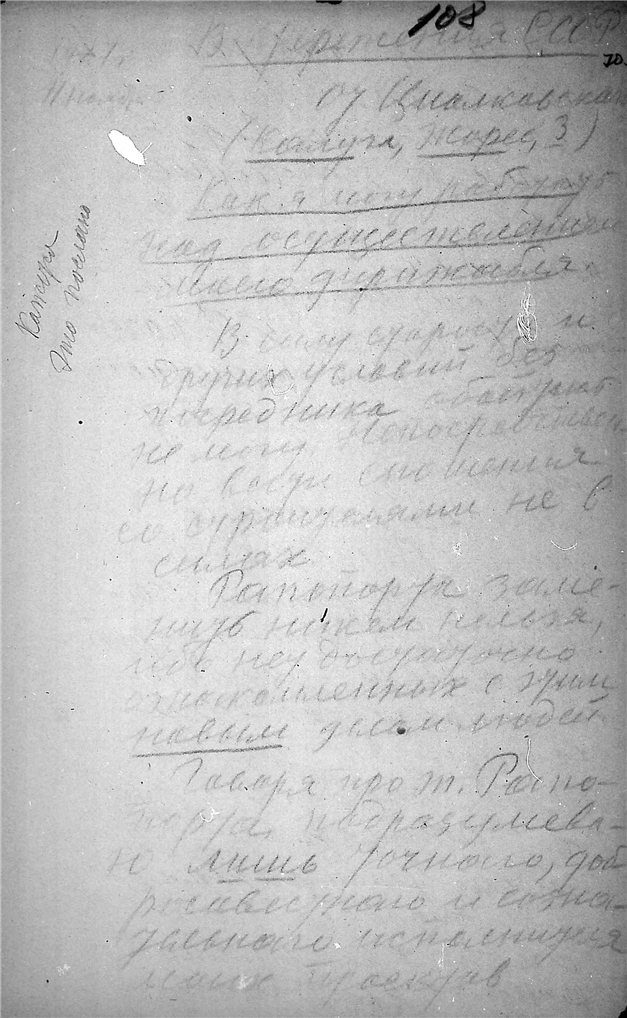 108
В Учреждения СССР
от Циолковского
(Калуга, Жорес, 3)
Как я могу работать
над осуществлением
моего дирижабля.
Кажется
это послано
В силу старости и
других условий без
посредника обойтись
не могу. Непосредствен-
но вести сношения
со строителями не в
силах
Рапопорта заме-
нить никем нельзя,
ибо нет достаточно
ознакомленных с этим
новым делом людей
Говоря про т. Рапо-
порта, подразумева-
ю лишь точного, доб-
росовестного и созна-
тельного исполнителя
моих проектов